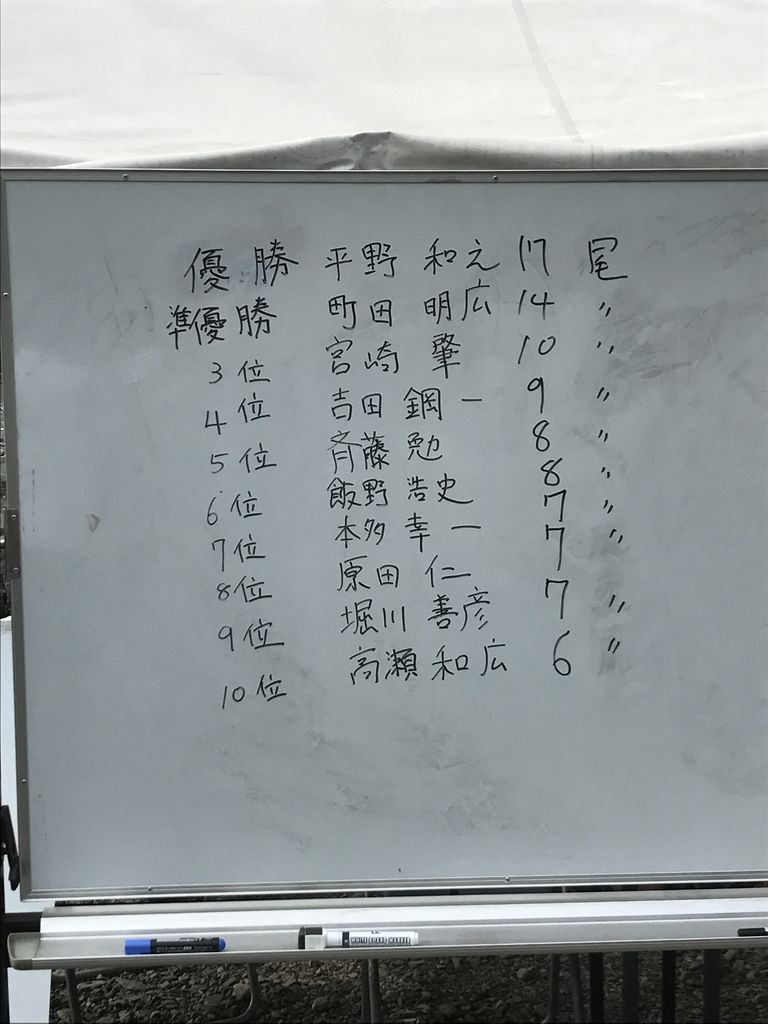 優勝 平野 和之 17 尾
準優勝 町田 明広 14 〃
3位 宮崎 肇 10 〃
4位 吉田 鋼一 9 〃
5位 斉藤 勉 8 〃
6位 飯野 浩史 8 〃
7位 本多 幸一 7 〃
8位 原田 仁 7 〃
9位 堀川 善彦 7 〃
10位 高瀬 和広 6 〃
WHITE BOARD MARKER